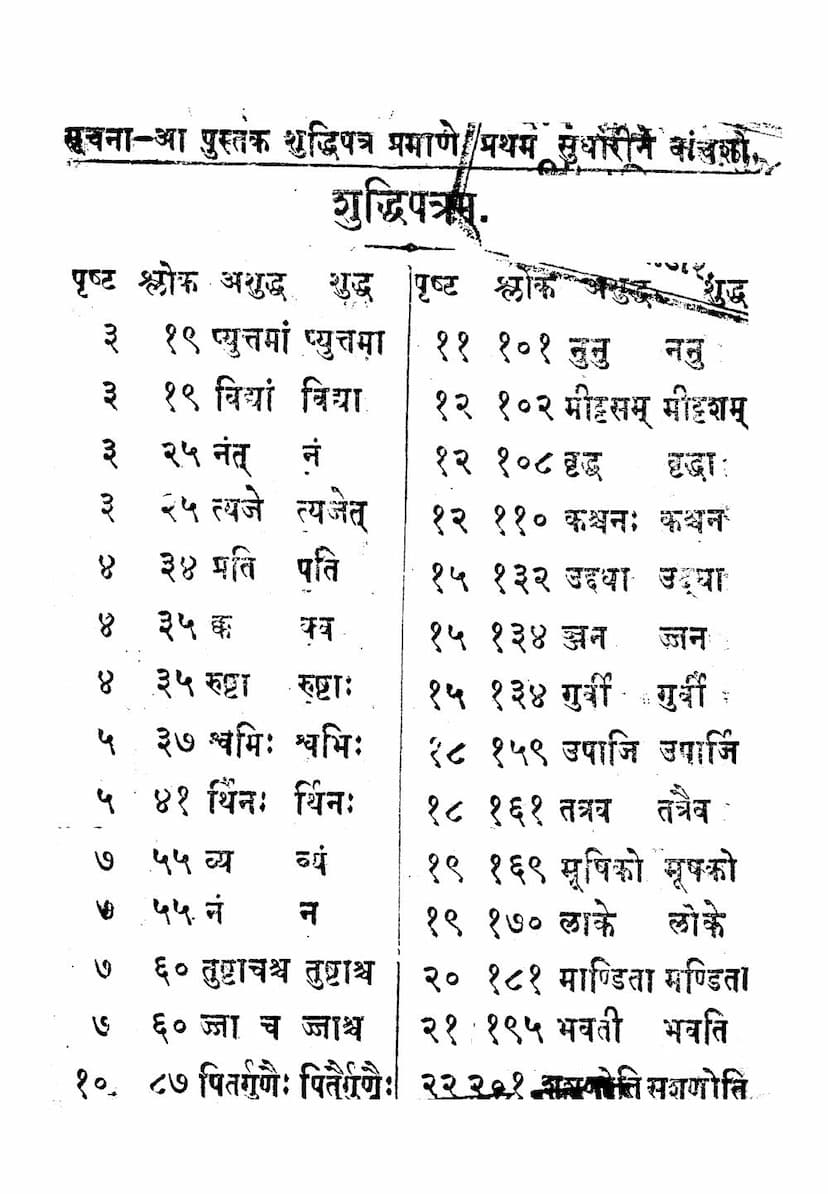 सूचना-आ पुस्तक शुद्धिपत्र प्रमाणे प्रथम सुधारीने वांचशो.
शुद्धिपत्रम्.
पृष्ट श्लोक अशुद्ध शुद्ध
३ १९ प्युत्तमां प्युत्तमा
३ १९ विद्यां विद्या
३ २५ नंत् नं
३ २५ त्यजे त्यजेत्
४ ३४ प्रति पति
४ ३५ क्क क्व
४ ३५ रुष्टा रुष्टाः
५ ३७ श्वमिः श्वभिः
५ ४१ र्थिनः र्थिनः
७ ५५ व्य व्यं
७ ५५ नं न
७ ६० तुष्टाचश्च तुष्टाश्च
७ ६० ज्जा च ज्जाश्च
१० ८७ पितर्गुणैः पितैर्गुणैः
पृष्ट श्लोक अशुद्ध शुद्ध
११ १०१ नुनु ननु
१२ १०२ मीदृसम् मीदृशम्
१२ १०८ वृद्ध वृद्धाः
१२ ११० कश्चनः कश्चन
१५ १३२ उद्दधा उद्घा
१५ १३४ ञ्जन ज्जन
१५ १३४ गुर्वी गुर्वीं
१८ १५९ उपाजि उपार्जि
१८ १६१ तत्रव तत्रैव
१९ १६९ मूषिको मूषको
१९ १७० लाके लोके
२० १८१ माण्डिता मण्डिता
२१ १९५ भवती भवति
२२ २०१